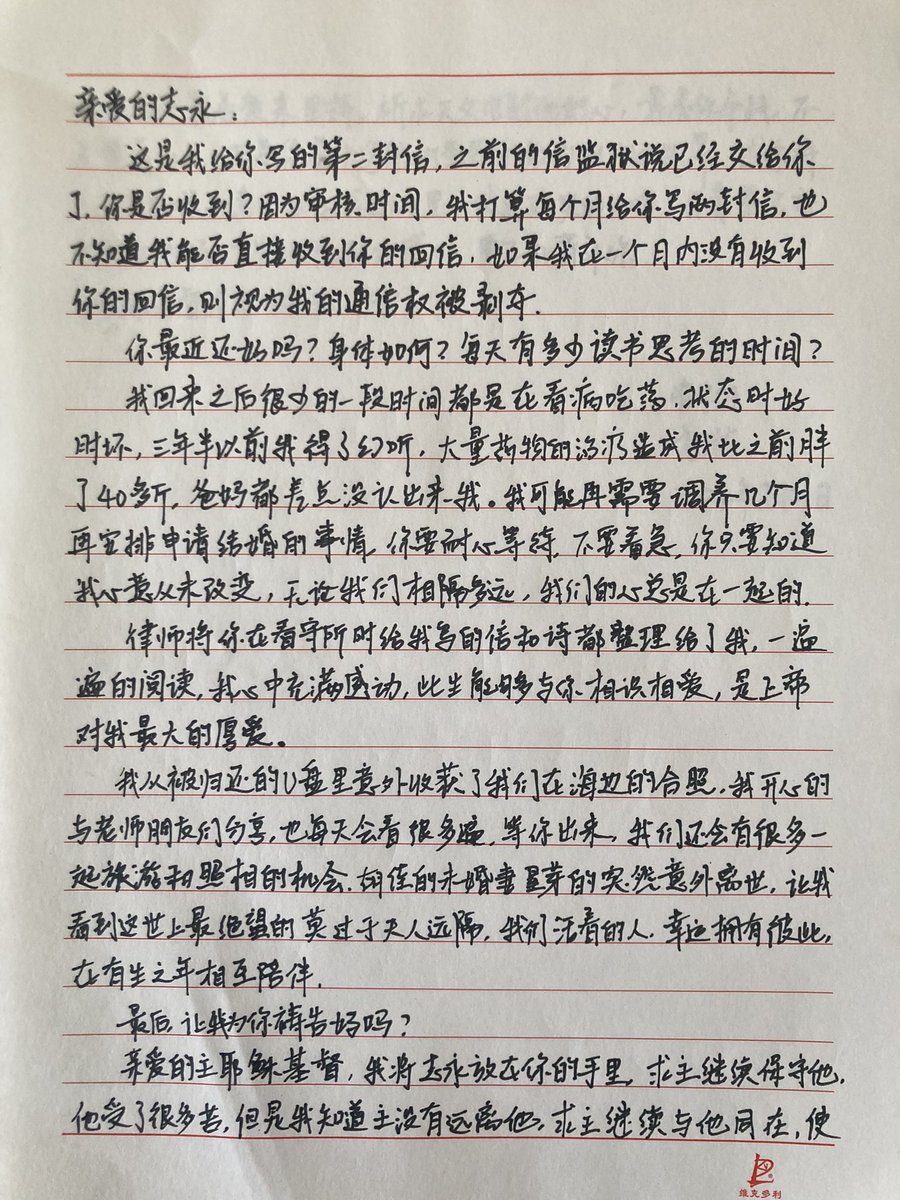 亲爱的志永：
这是我给你写的第二封信，之前的信监狱说已经交给你
了，你是否收到？因为审核时间，我打算每个月给你写两封信，也
不知道我能否直接收到你的回信，如果我在一个月内没有收到
你的回信，则视为我的通信权被剥夺.
你最近还好吗？身体如何？每天有多少读书思考的时间？
我回来之后很多的一段时间都是在看病吃药，状态时好
时坏，三年半以前我得了幻听，大量药物的治疗造成我比之前胖
了40多斤，爸妈都差点没认出来我。我可能再需要调养几个月
再安排申请结婚的事情，你要耐心等待，不要着急，你只要知道
我心意从未改变，无论我们相隔多远，我们的心总是在一起的.
律师将你在看守所时给我写的信和诗都整理给了我，一遍
遍的阅读，我心中充满感动，此生能够与你相识相爱，是上帝
对我最大的厚爱。
我从被归还的U盘里意外收获了我们在海边的合照，我开心的
与老师朋友们分享，也每天会看很多遍，等你出来，我们还会有很多一
起旅游和照相的机会.胡佳的未婚妻星芽的突然意外离世，让我
看到这世上最绝望的莫过于天人远隔，我们活着的人，幸运拥有彼此，
在有生之年相互陪伴.
最后，让我为你祷告好吗？
亲爱的主耶稣基督，我将志永放在你的手里，求主继续保守他，
他受了很多苦，但是我知道主没有远离他，求主继续与他同在，使
维克多利